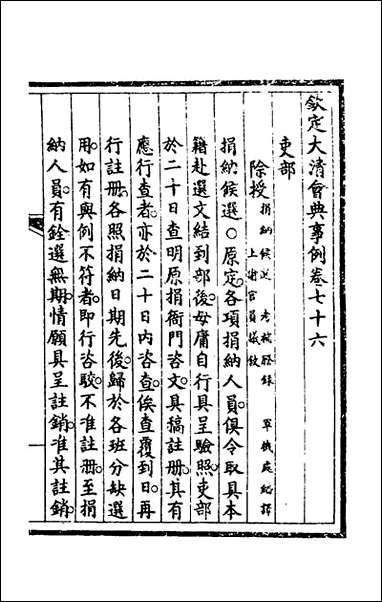 欽定大清會典事例卷七十六
吏部
除授捐納候選 考職謄錄 軍機處繙譯
上諭官員議敘
捐納候選○原定各項捐納人員俱令取具本
籍赴選文結到部後毋庸自行具呈驗照吏部
於二十日查明原捐衙門咨文具稿註冊其有
應行查者亦於二十日內咨查俟查覆到日再
行註冊各照捐納日期先後歸於各班分缺選
用如有與例不符者即行咨駮不准註冊至捐
納人員有銓選無期情願具呈註銷准其註銷